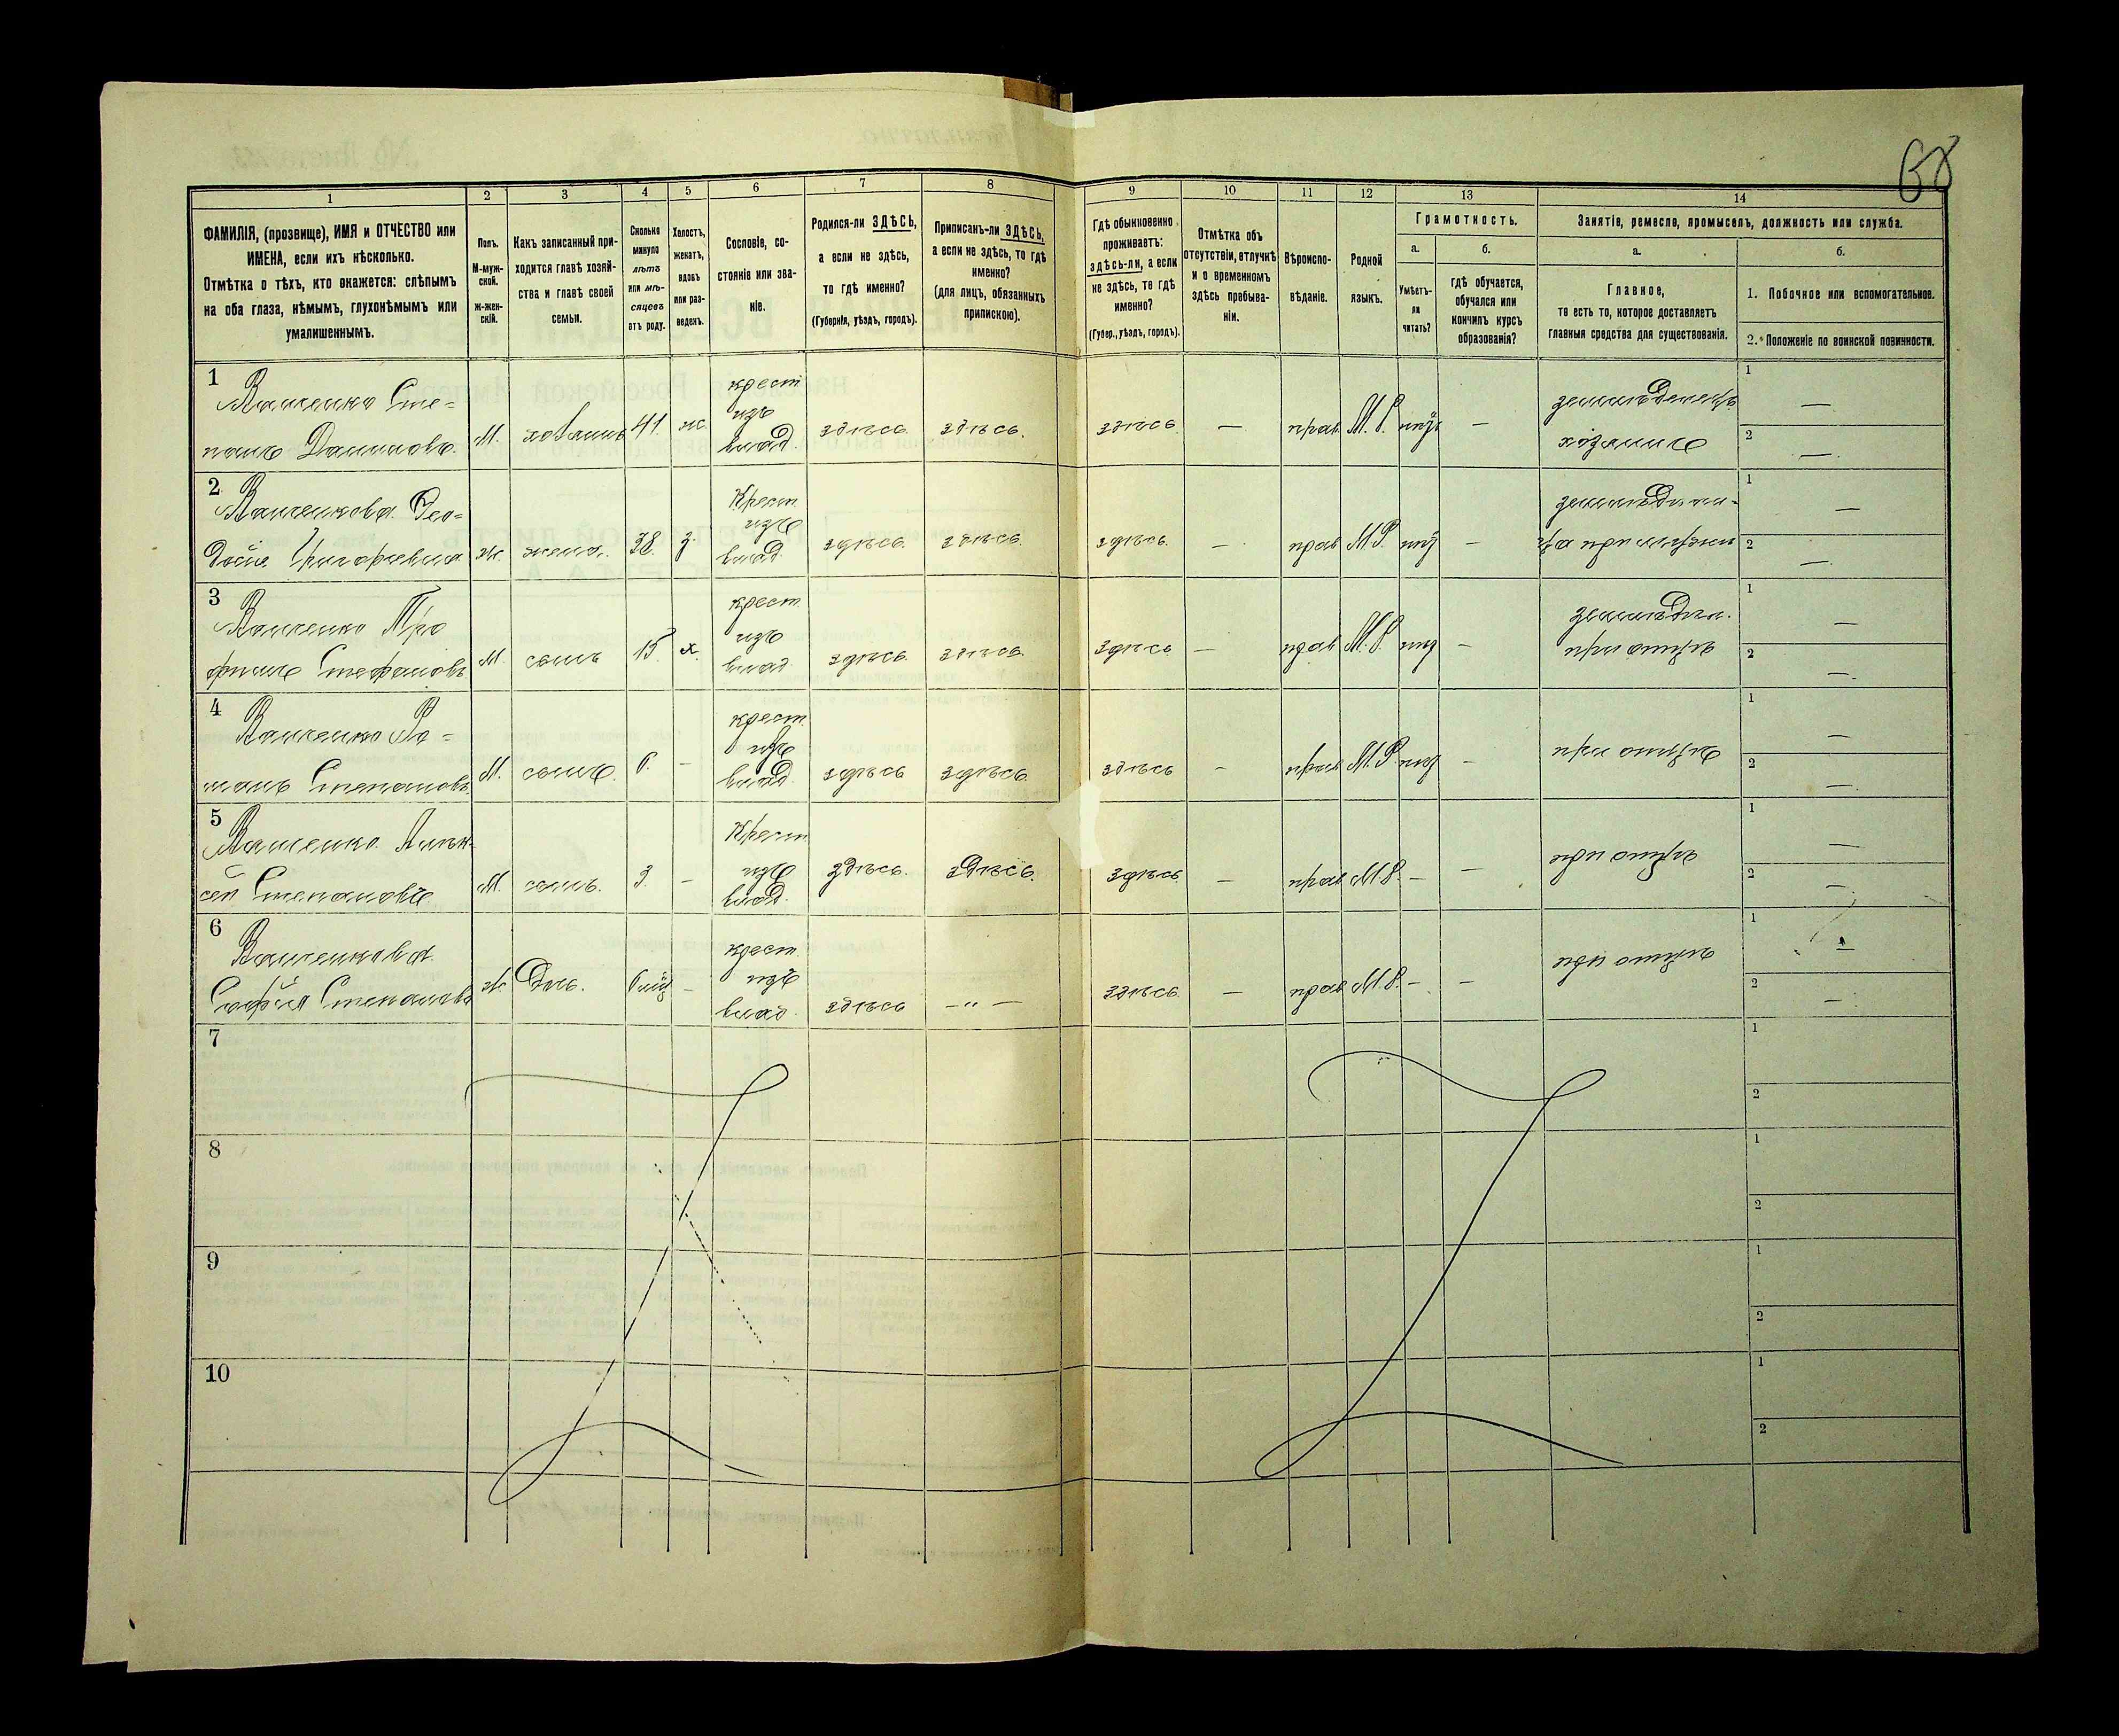 68
1 2 3 4 5 6 7 8 9 10 11 12 13 14
ФАМИЛІЯ, (прозвище), ИМЯ и ОТЧЕСТВО или
ИМЕНА, если ихъ нѣсколько.
Отмѣтка о тѣхъ, кто окажется: слѣпымъ
на оба глаза, нѣмымъ, глухонѣмымъ или
умалишеннымъ.
Полъ.
М-муж-
ской.
Ж-жен-
скій.
Какъ записанный при-
ходится главѣ хозяй-
ства и главѣ своей
семьи.
Сколько
минуло
лѣтъ
или мѣ-
сяцевъ
отъ роду.
Холостъ,
женатъ,
вдовъ
или раз-
веденъ.
Сословіе, со-
стояніе или зва-
ніе.
Родился-ли ЗДѢСЬ,
а если не здѣсь,
то гдѣ именно?
(Губернія, уѣздъ, городъ).
Приписанъ-ли ЗДѢСЬ,
а если не здѣсь, то гдѣ
именно?
(для лицъ, обязанныхъ
припискою).
Гдѣ обыкновенно
проживаетъ:
здѣсь-ли, а если
не здѣсь, то гдѣ
именно?
(Губер., уѣздъ, городъ).
Отмѣтка объ
отсутствіи, отлучкѣ
и о временномъ
здѣсь пребыва-
ніи.
Вѣроиспо-
вѣданіе.
Родной
языкъ.
Грамотность.
а.
Умѣетъ-
ли
читать?
б.
Гдѣ обучается,
обучался или
кончилъ курсъ
образованія?
Занятіе, ремесло, промыселъ, должность или служба.
а.
Главное,
то есть то, которое доставляетъ
главныя средства для существованія.
б.
1. Побочное или вспомогательное.
2. Положеніе по воинской повинности.
1
Ващенко Сте-
панъ Даниловъ.
М. хозяинъ 41 ж.
крест
изъ
влад.
здѣсь здѣсь. здѣсь — прав. М.Р. —
земледѣлецъ
хозяинъ
1 —
2 —
2
Ващенкова Ѳео-
досія Григорьевна
ж. жена. 38 з.
Крест.
изъ
влад.
здѣсь. здѣсь. здѣсь. — прав М.Р. —
1 —
2 —
3
Ващенко Тро
фимъ Стефановъ
М. сынъ 15 х.
крест.
изъ
влад.
здѣсь. здѣсь. здѣсь — прав М.Р. —
земледѣл.
при отцѣ
1 —
2 —
4
Ващенко Ро-
манъ Степановъ.
М. сынъ. 6. —
крест.
изъ
влад.
здѣсь здѣсь. здѣсь — прав М.Р. —
при отцѣ
1 —
2 —
5
Ващенко Алек-
сѣй Степановъ
М. сынъ. 3. —
Крест.
изъ
влад.
здѣсь. здѣсь. здѣсь — прав М.Р. — —
при отцѣ
1 —
2 —
6
Ващенкова
Софія Степанова
ж. Дочь. —
крест.
изъ
влад.
здѣсь — " — здѣсь. — прав М.Р. — —
при отцѣ
1 —
2 —
7
1
2
8
1
2
9
1
2
10
1
2